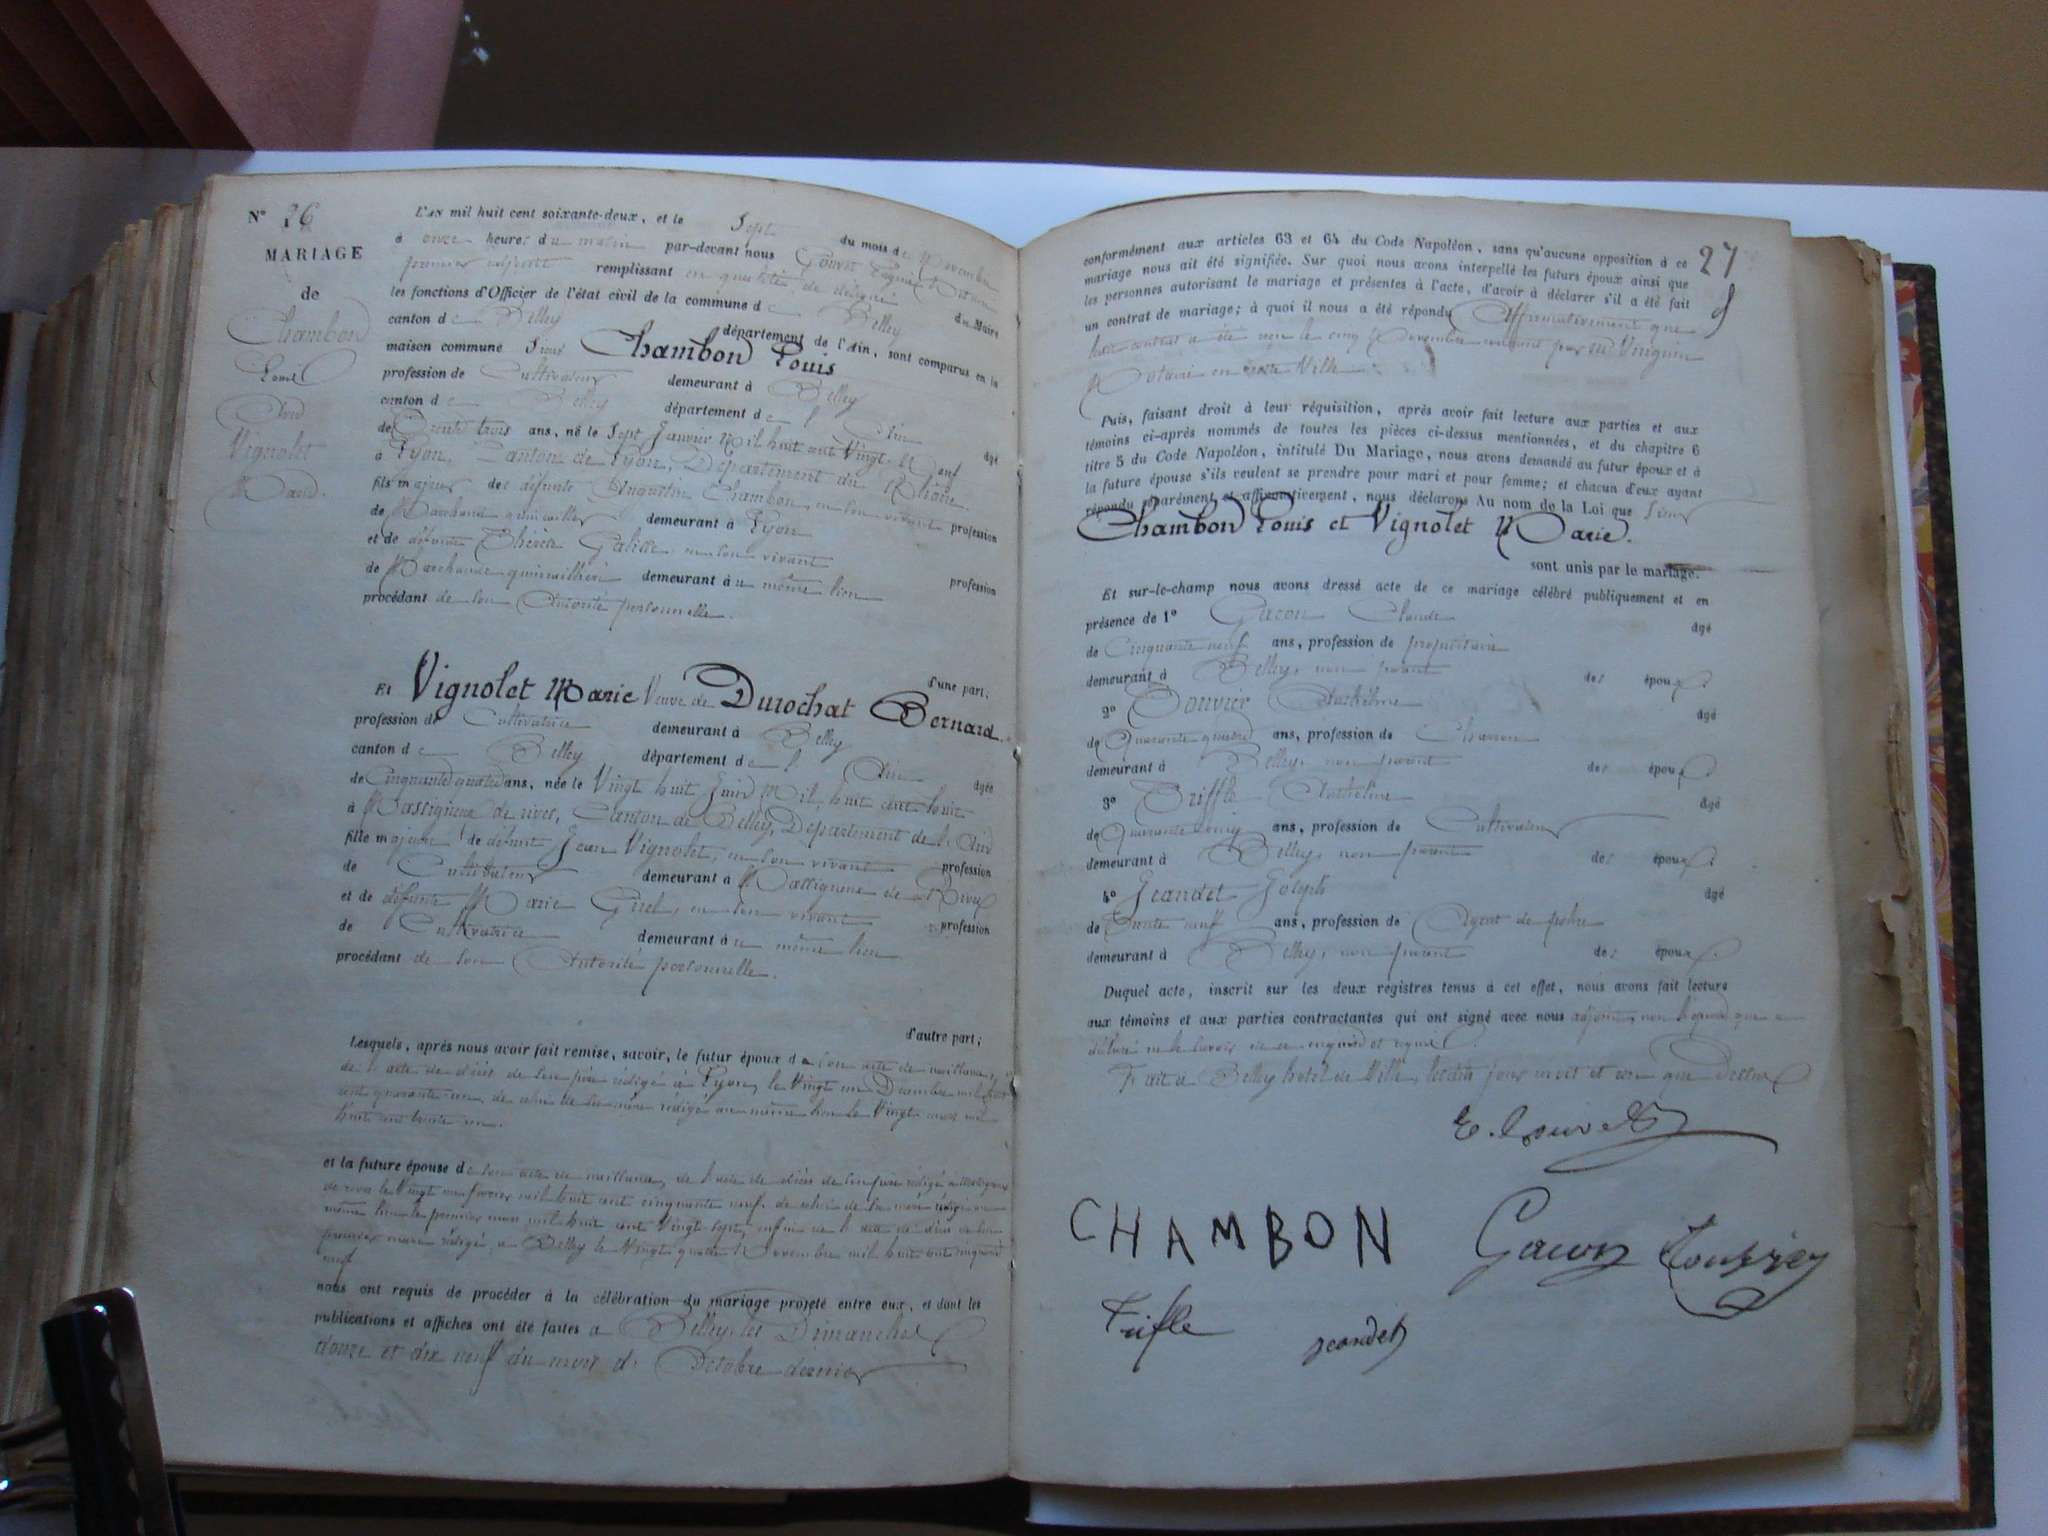 N° 26
MARIAGE
de
Chambon
Louis
Avec
Vignolet
Marie.
L'AN mil huit cent soixante-deux, et le Sept du mois de Novembre
à onze heures du matin par-devant nous
premier adjoint remplissant en qualité de délégué du Maire
les fonctions d'Officier de l'état civil de la commune de Belley
canton de Belley département de l'Ain, sont comparus en la
maison commune Sieur Chambon Louis
profession de Cultivateur demeurant à Belley
canton de Belley département de l'Ain âgé
de Trente trois ans, né le Sept Janvier Mil huit cent Vingt Neuf
à Lyon, Canton de Lyon, Département du Rhône
fils majeur de défunts Augustin Chambon, en son vivant profession
de Marchand quincailler demeurant à Lyon
et de défunte Thérèse en son vivant profession
de Marchande quincaillière demeurant au même lieu
procédant de son Autorité personnelle.
d'une part;
Et Vignolet Marie Veuve de Durochat Bernard.
profession de Cultivatrice demeurant à Belley
canton de Belley département de l'Ain âgée
de Cinquante quatre ans, née le Vingt huit Juin Mil huit cent huit
à Massignieu de rives, Canton de Belley, Département de l'Ain
fille majeure de défunts Jean Vignolet, en son vivant profession
de Cultivateur demeurant à Massignieu de Rives
et de défunte Marie en son vivant profession
de Cultivatrice demeurant au même lieu
procédant de son Autorité personnelle.
d'autre part;
Lesquels, après nous avoir fait remise, savoir, le futur époux de son acte de naissance,
de l'acte de décès de son père rédigé à Lyon, le Vingt un Décembre mil huit
cent quarante un, de celui de sa mère rédigé au même lieu le Vingt mars mil
huit cent trente un.
et la future épouse de son acte de naissance, de l'acte de décès de son père rédigé à Massignieu
de rives le Vingt un février mil huit cent cinquante neuf, de celui de sa mère rédigé au
même lieu le premier mars mil huit cent Vingt Sept, enfin de l'acte de décès de son
premier mari rédigé à Belley le Vingt quatre Novembre mil huit cent cinquante
neuf
nous ont requis de procéder à la célébration du mariage projeté entre eux, et dont les
publications et affiches ont été faites à Belley, les Dimanches
douze et dix neuf du mois d'Octobre dernier
27
conformément aux articles 63 et 64 du Code Napoléon, sans qu'aucune opposition à ce
mariage nous ait été signifiée. Sur quoi nous avons interpellé les futurs époux ainsi que
les personnes autorisant le mariage et présentes à l'acte, d'avoir à déclarer s'il a été fait
un contrat de mariage; à quoi il nous a été répondu Affirmativement que
leur contrat a été reçu le cinq Novembre courant par Me
Notaire en cette Ville
Puis, faisant droit à leur réquisition, après avoir fait lecture aux parties et aux
témoins ci-après nommés de toutes les pièces ci-dessus mentionnées, et du chapitre 6
titre 5 du Code Napoléon, intitulé Du Mariage, nous avons demandé au futur époux et à
la future épouse s'ils veulent se prendre pour mari et pour femme; et chacun d'eux ayant
répondu séparément et affirmativement, nous déclarons Au nom de la Loi que Sieur
Chambon Louis et Vignolet Marie.
sont unis par le mariage.
Et sur-le-champ nous avons dressé acte de ce mariage célébré publiquement et en
présence de 1° Gacon Claude âgé
de Cinquante neuf ans, profession de propriétaire
demeurant à Belley, non parent des époux.
2° Bouvier Anthelme âgé
de Quarante quatre ans, profession de Charron
demeurant à Belley, non parent des époux
3° Triffle Anthelme âgé
de Quarante cinq ans, profession de Cultivateur
demeurant à Belley, non parent des époux.
4° Jeandet Joseph âgé
de Trente neuf ans, profession de Agent de police
demeurant à Belley, non parent des époux.
Duquel acte, inscrit sur les deux registres tenus à cet effet, nous avons fait lecture
aux témoins et aux parties contractantes qui ont signé avec nous adjoint, non l'épouse qui a
déclaré ne le savoir de ce enquise et requise.
Fait à Belley hôtel de Ville, lesdits jour mois et an que Dessus
CHAMBON
Gacon
Trifle
jeandet